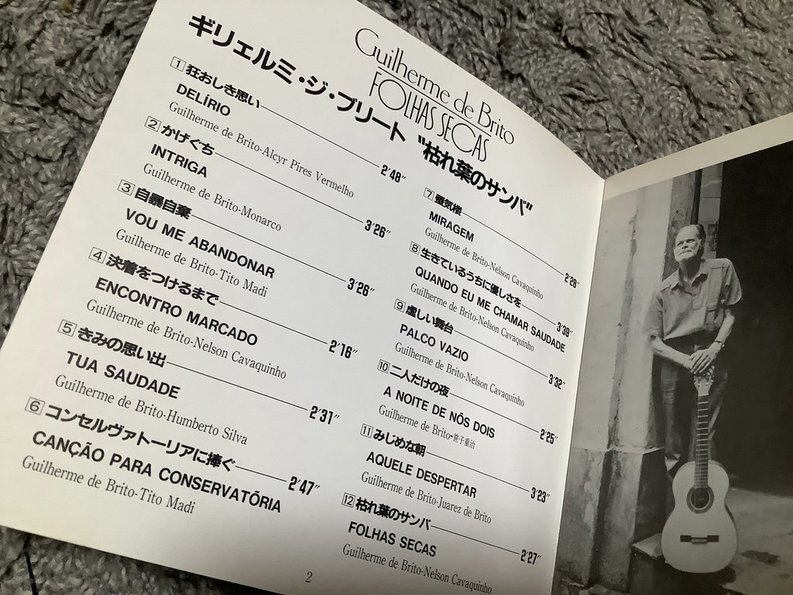 Guilherme de Brito
FOLHAS SECAS
ギリェルミ・ジ・ブリート "枯れ葉のサンバ"
1 狂おしき思い 2'48"
DELÍRIO
Guilherme de Brito-Alcyr Pires Vermelho
2 かげぐち 3'26"
INTRIGA
Guilherme de Brito-Monarco
3 自暴自棄 3'26"
VOU ME ABANDONAR
Guilherme de Brito-Tito Madi
4 決着をつけるまで 2'16"
ENCONTRO MARCADO
Guilherme de Brito-Nelson Cavaquinho
5 きみの思い出 2'31"
TUA SAUDADE
Guilherme de Brito-Humberto Silva
6 コンセルヴァトーリアに捧ぐ 2'47"
CANÇÃO PARA CONSERVATÓRIA
Guilherme de Brito-Tito Madi
7 蜃気楼 2'28"
MIRAGEM
Guilherme de Brito-Nelson Cavaquinho
8 生きているうちに優しさを 3'39"
QUANDO EU ME CHAMAR SAUDADE
Guilherme de Brito-Nelson Cavaquinho
9 虚しい舞台 3'32"
PALCO VAZIO
Guilherme de Brito-Nelson Cavaquinho
10 二人だけの夜 2'25"
A NOITE DE NÓS DOIS
Guilherme de Brito-
11 みじめな朝 3'23"
AQUELE DESPERTAR
Guilherme de Brito-Juarez de Brito
12 枯れ葉のサンバ 2'27"
FOLHAS SECAS
Guilherme de Brito-Nelson Cavaquinho
2